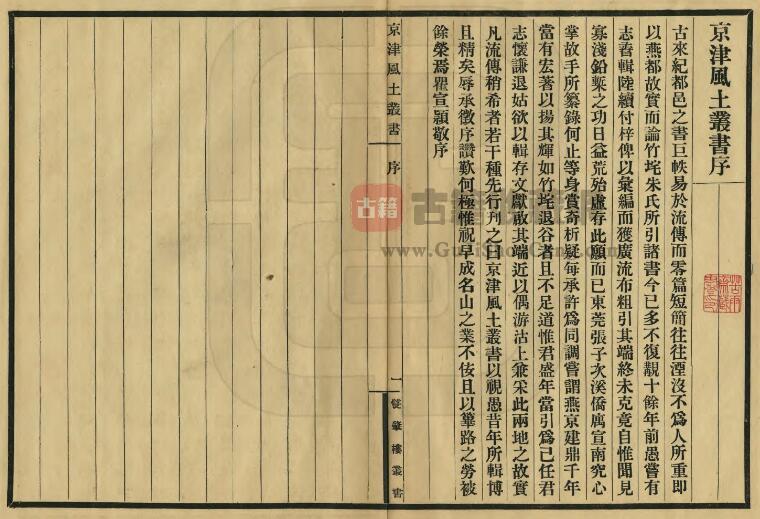 京津風土叢書序
古來紀都邑之書巨帙易於流傳而零篇短簡往往湮沒不爲人所重即
以燕都故實而論竹垞朱氏所引諸書今已多不復覩十餘年前愚嘗有
志蒼輯陸續付梓俾以彙編而獲廣流布粗引其端終未克竟自惟聞見
寡淺鉛槧之功日益荒殆虛存此願而已東莞張子次溪僑寓宣南究心
掌故手所纂錄何止等身賞奇析疑每承許爲同調嘗謂燕京建鼎千年
當有宏著以揚其輝如竹垞退谷者且不足道惟君盛年當引爲己任君
志懷謙退姑欲以輯存文獻啟其端近以偶游沽上兼采此兩地之故實
凡流傳稍希者若干種先行刋之曰京津風土叢書以視愚昔年所輯博
且精矣辱承徵序讚歎何極惟祝早成名山之業不佞且以篳路之勞被
餘榮焉瞿宣穎敬序
京津風土叢書 序 一 雙肇樓叢書
古籍
www.Gu